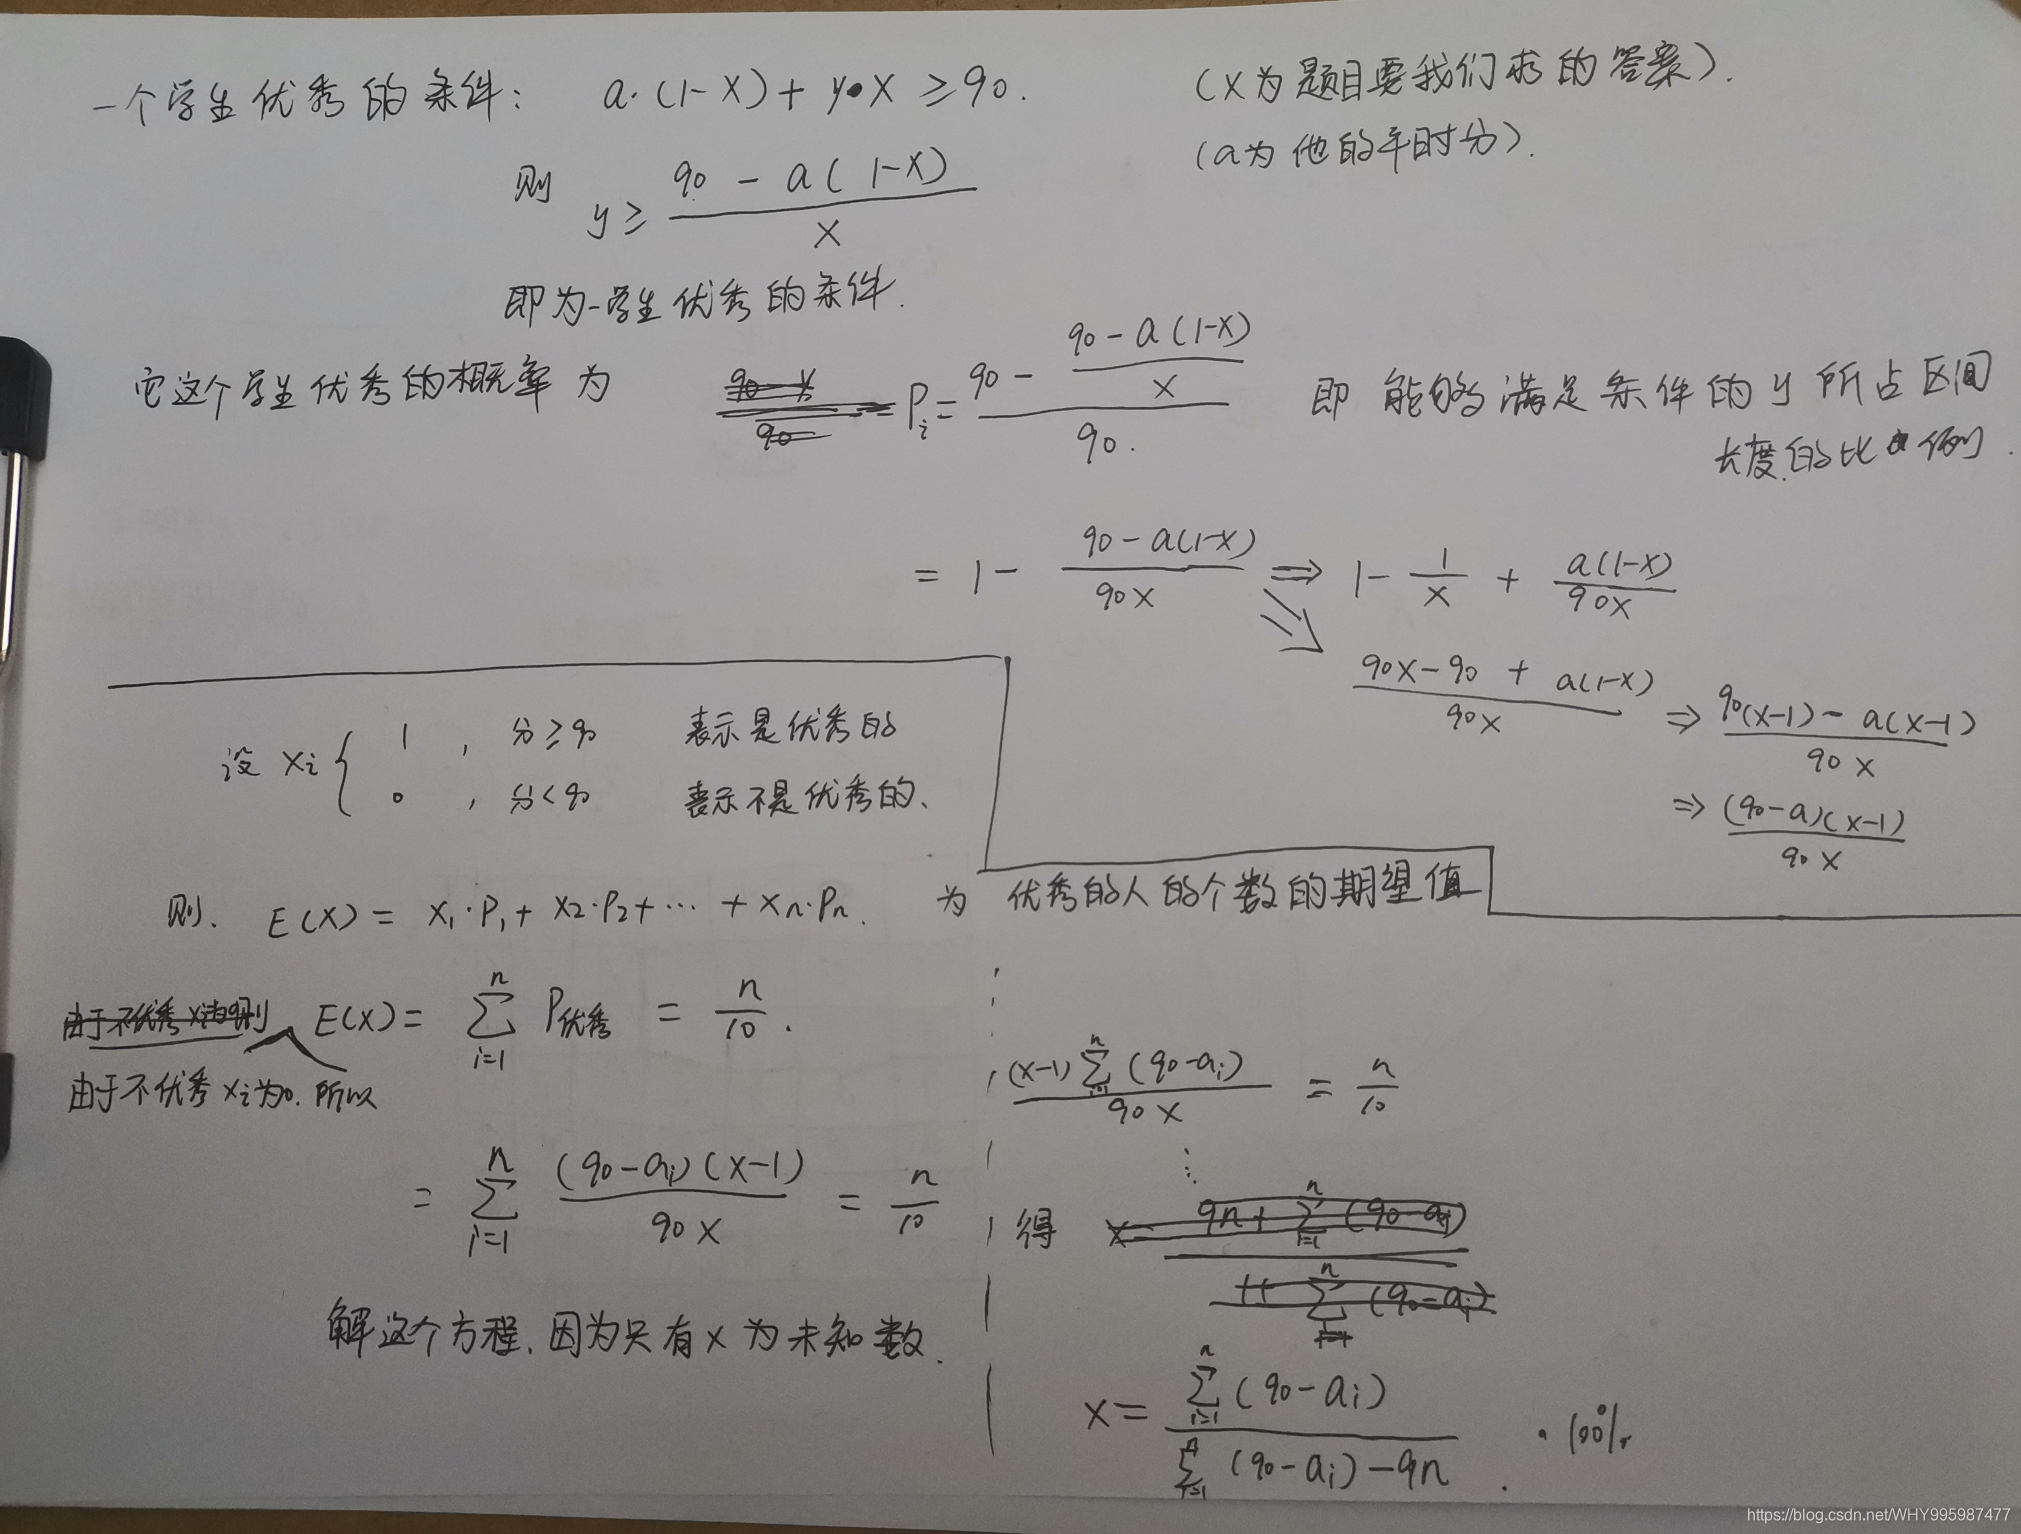 一个学生优秀的条件: a·(1-X)+y·X ≥90. (X为题目要我们求的答案).
(a为他的平时分).
则 y≥ (90 - a(1-X)) / X
即为一学生优秀的条件.
它这个学生优秀的概率为 P_i = (90 - (90-a(1-X))/X) / 90. 即 能够满足条件的 y 所占区间
长度的比例.
= 1 - (90-a(1-X))/(90X) ⇒ 1 - 1/X + a(1-X)/(90X)
(90X-90 + a(1-X))/(90X) ⇒ (90(X-1) - a(X-1))/(90X)
⇒ (90-a)(X-1)/(90X)
设 Xi { 1 , 分≥90 表示是优秀的
0 , 分<90 表示不是优秀的、
则. E(X) = X₁·P₁ + X₂·P₂+ ··· + Xn·Pn. 为 优秀的人的个数的期望值
由于不优秀 Xi为0. 所以 E(X) = ∑_{i=1}^{n} P优秀 = n/10.
= ∑_{i=1}^{n} (90-ai)(X-1)/(90X) = n/10
解这个方程, 因为只有 X 为未知数.
(X-1)∑_{i=1}^{n}(90-ai)/(90X) = n/10
得
X = ∑_{i=1}^{n}(90-ai) / (∑_{i=1}^{n}(90-ai) - 9n) · 100%.
https://blog.csdn.net/WHY995987477